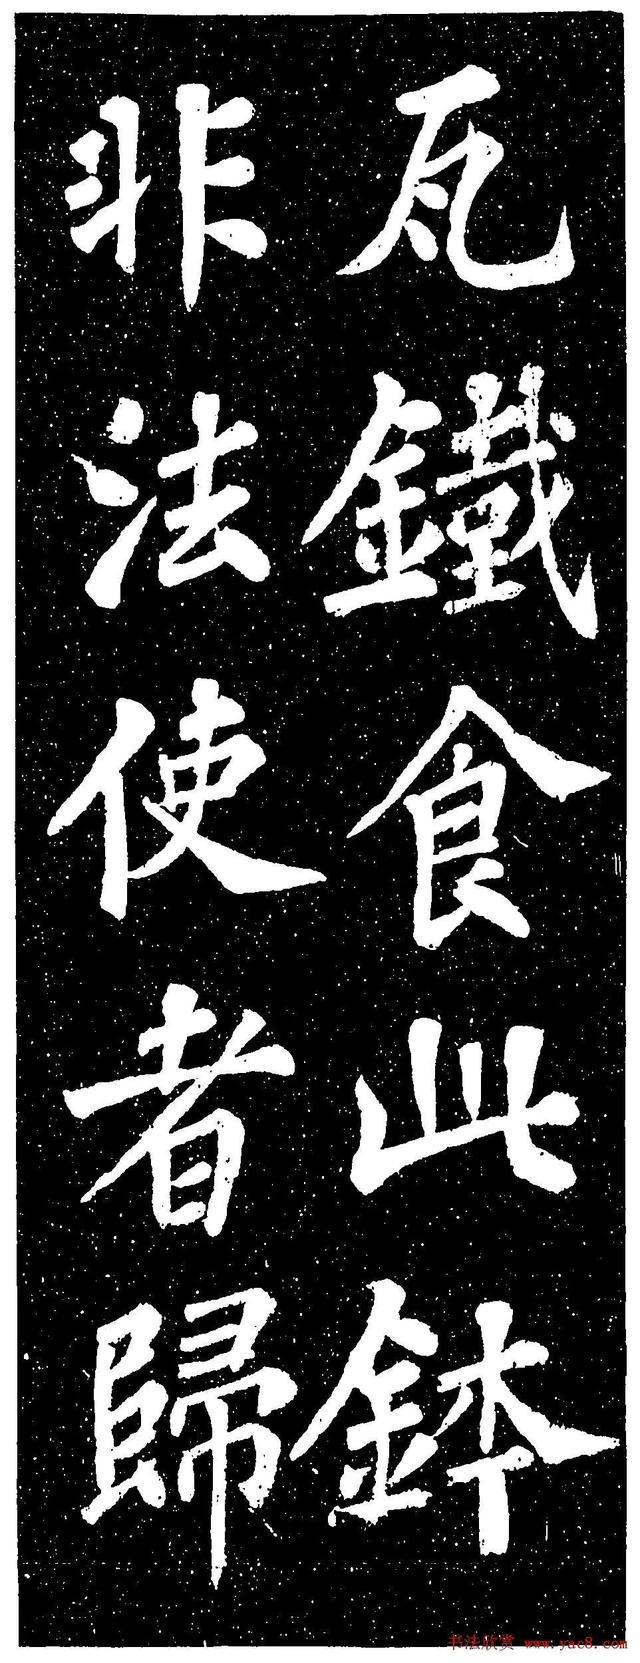 瓦鐵食此鉢
非法使者歸
书法欣赏 www.yac8.com